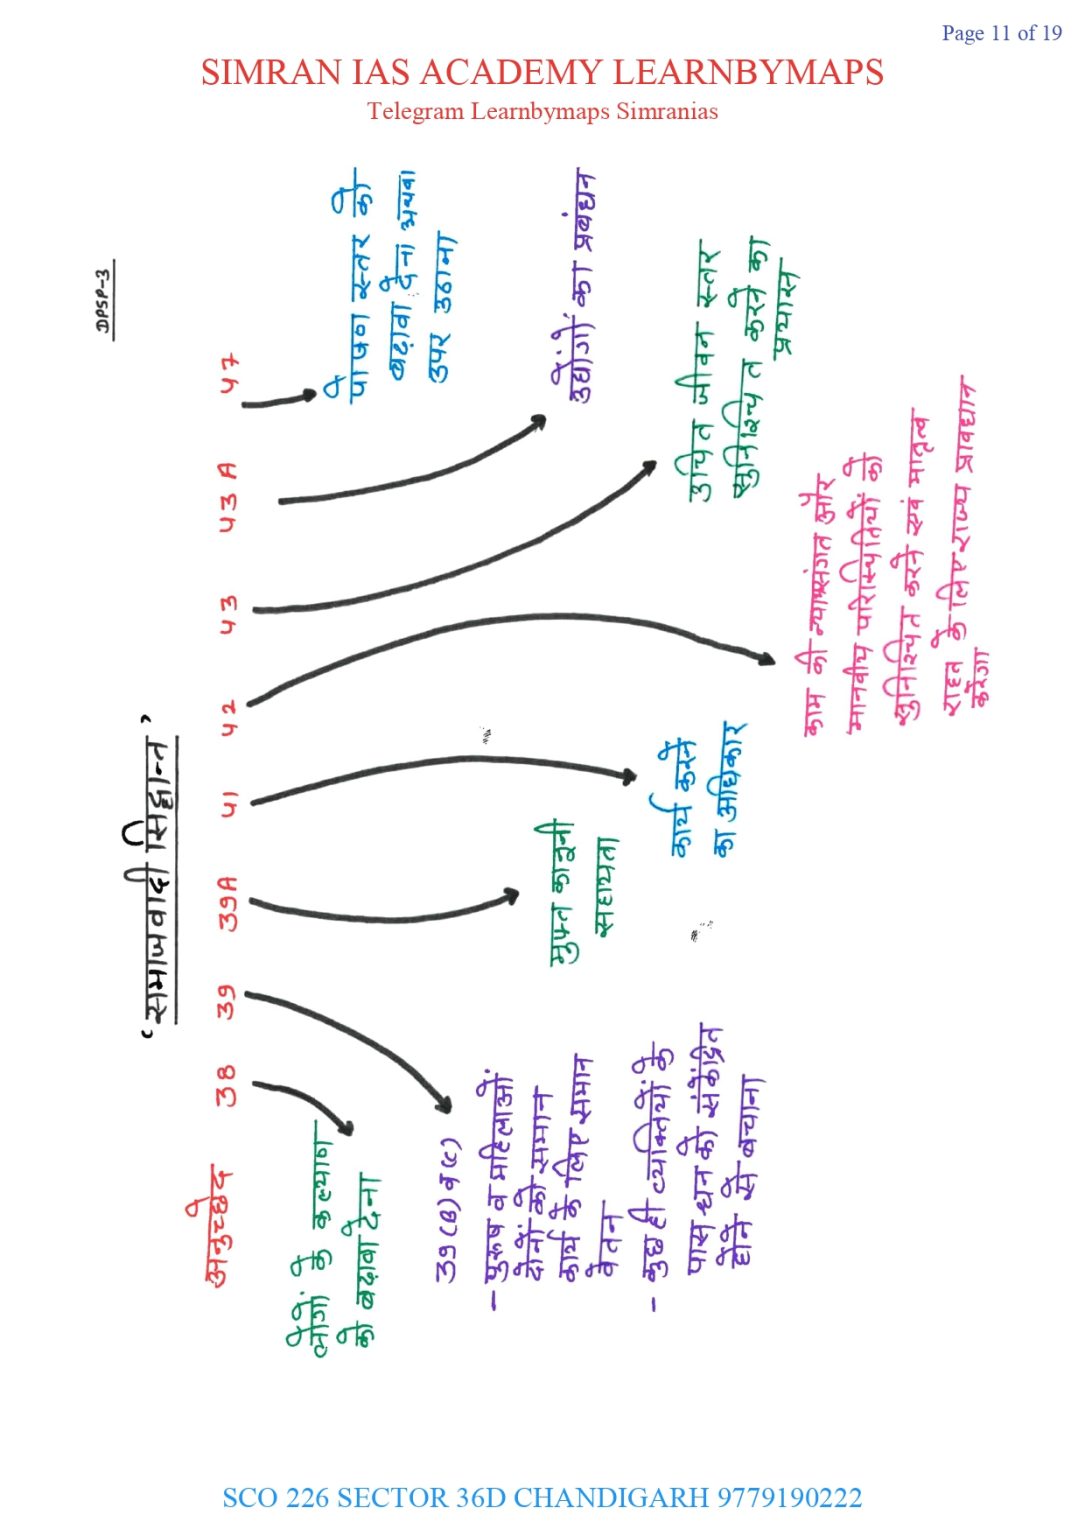 Page 11 of 19
SIMRAN IAS ACADEMY LEARNBYMAPS
Telegram Learnbymaps Simranias
DPSP-3
‘समाजवादी सिद्धान्त’
अनुच्छेद 38 39 39A 41 42 43 43A 47
लोगों के कल्याण
को बढ़ावा देना
39(B) व (C)
- पुरूष व महिलाओं
दोनों को समान
कार्य के लिए समान
वेतन
- कुछ ही व्यक्तियों के
पास धन को संकेंद्रित
होने से बचाना
मुफ्त कानूनी
सहायता
कार्य करने
का अधिकार
काम की न्यायसंगत और
मानवीय परिस्थितियों को
सुनिश्चित करने एवं मातृत्व
राहत के लिए राज्य प्रावधान
करेगा
उचित जीवन स्तर
सुनिश्चित करने का
प्रयास
उद्योगों का प्रबंधन
पोषण स्तर को
बढ़ावा देना अथवा
उपर उठाना
SCO 226 SECTOR 36D CHANDIGARH 9779190222